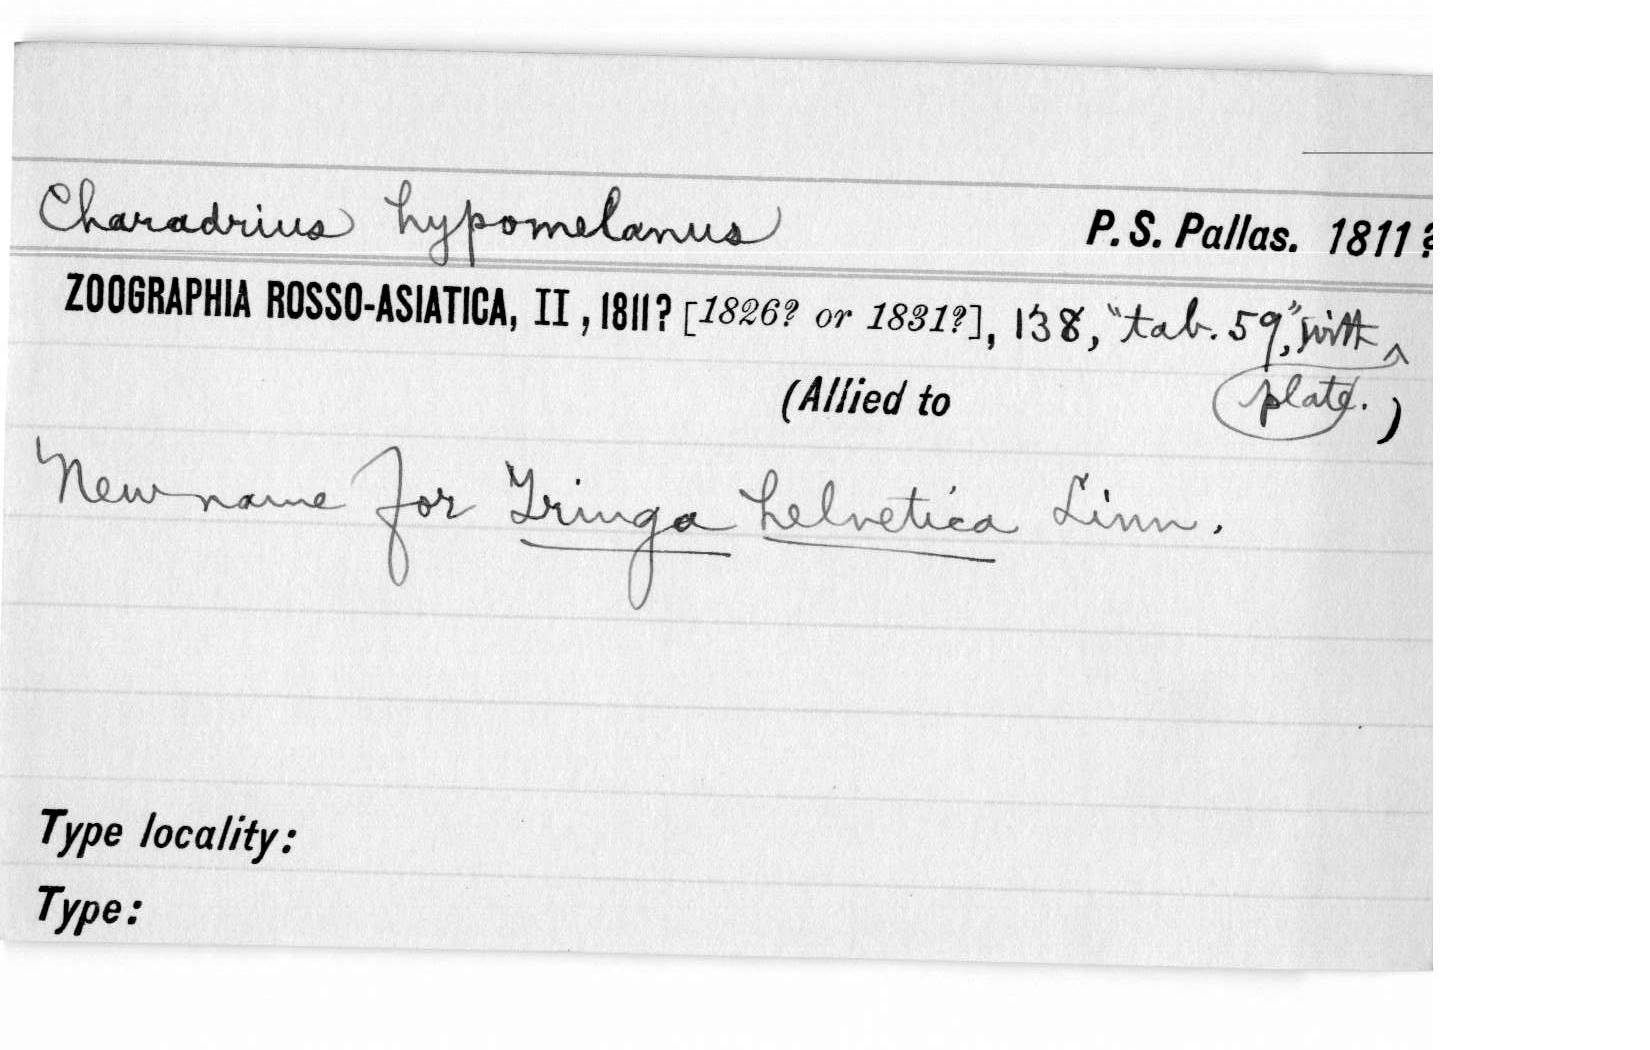 Charadrius hypomelanus P. S. Pallas. 1811?
ZOOGRAPHIA ROSSO-ASIATICA, II, 1811? [1826? or 1831?], 138, "tab. 59," with
(Allied to plate. )
New name for Tringa helvetica Linn.
Type locality:
Type: